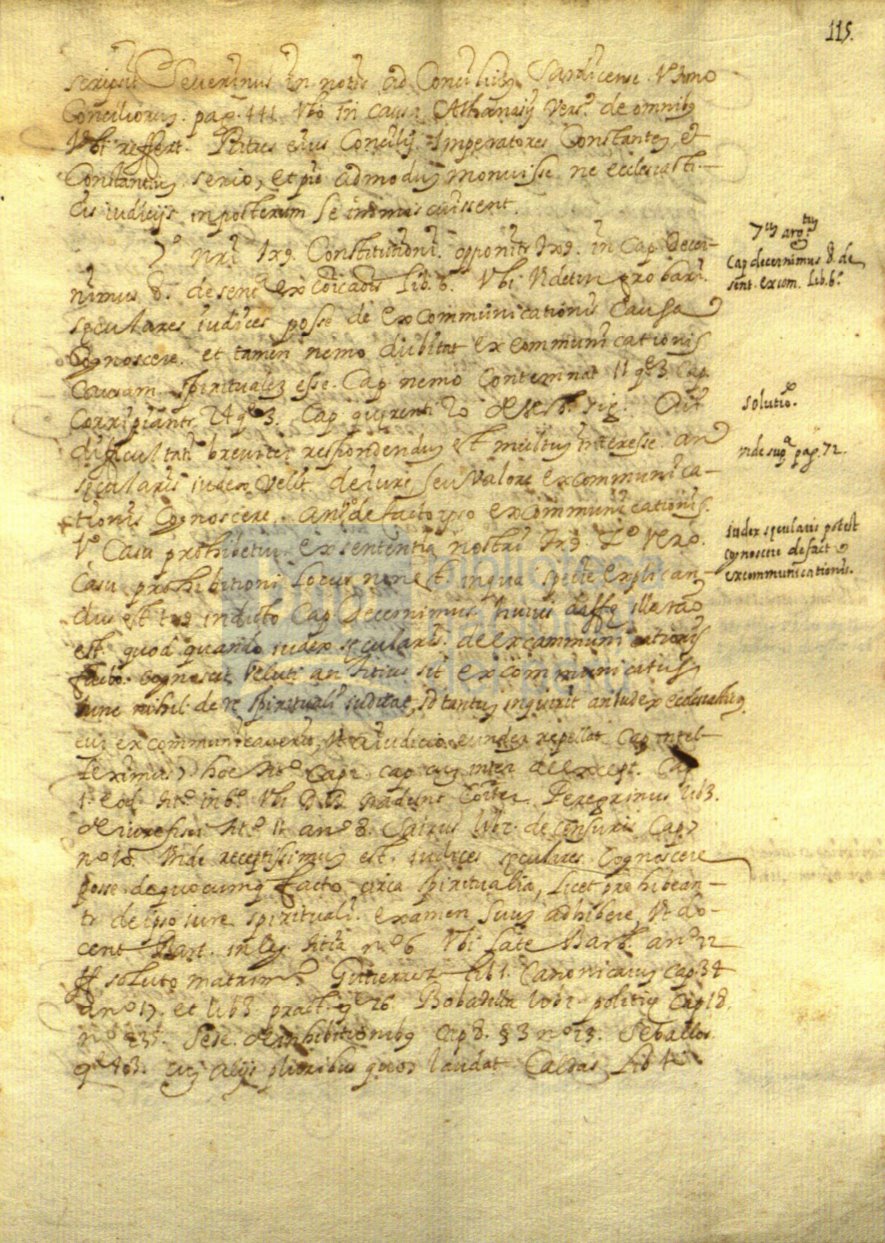 115.
scripsit Severinus in notis ad Concilium Sardicense tomo
Conciliorum pag. 411. Vbi in causa Athanasij vers. de omnibus
Vbi reffert. Patres eius Concilij Imperatores Constantem et
Constantium serio, et pie admodum monuisse ne ecclesiasti-
cis iudicijs in posterum se inmiscuissent.
7º nrã Irg. Constitutioni opponitr Irg. in Cap. Decer-
nimus 8. de sent. excoicaõis lib. 6. Vbi Videtur probari
seculares iudices posse de excommunicationis causa
Cognoscere. et tamen nemo dubitat excommunicationis
Causam spiritualem esse. Cap nemo Contemnat 11 q. 3. Cap.
Corripiantr 24 q. 3. Cap querenti 20 de
difficultati breviter respondendum est multum interesse an
secularis iudex Velit de iure seu Valore excommunica-
tionis Cognoscere. an de facto ipso excommunicationis.
Vº Casu prohibetur ex sententia nostri Irg. 2º Vero
Casu prohibitioni locus non est. in qua specie explican-
dus est tex. in dicto Cap Decernimus. huius illa rao
est. quod quando iudex secularis de excommunicationis
facto cognoscit veluti an Titius sit excommunicatus
tunc nihil de re spirituali iudicat, sed tantum inquirit an iudex ecclesiasticus
eum excommunicaverit, Vt a iudicio eundem repellat Cap intel-
leximus, hoc ttº Cap 1. cap cum inter de except. Cap
1. eod. ttº in 6. Vbi DD. tradunt Coiter Peregrinus lib 3.
de iure fisci ttº 11 an nº 8. de censuris Cap
nº 10. Vnde receptissimum est iudices seculares Cognoscere
posse de quocumq facto circa spiritualia, licet prohibean-
tr de ipso iure spirituali examen suum adhibere, Vt do-
cent Bart. in leg. titia nº 6 Vbi late Barb. an nº 22
ff soluto matrim. Gutierrez lib 1. Canonicarum Cap 34
an nº 17. et lib 3 pract. q. 26 Bobadilla lib 2 politic Cap 18.
nº Sesse de inhibitionibus Cap 8. § 3 nº 23. Seballos
q. cum alijs pluribus quos laudat Caldas lib 1
7º argtũ
Cap decernimus 8. de
sent. excom. lib. 6.
solutio.
vide supª pag. 72.
iudex secularis potest
cognoscere de facto
excommunicationis.